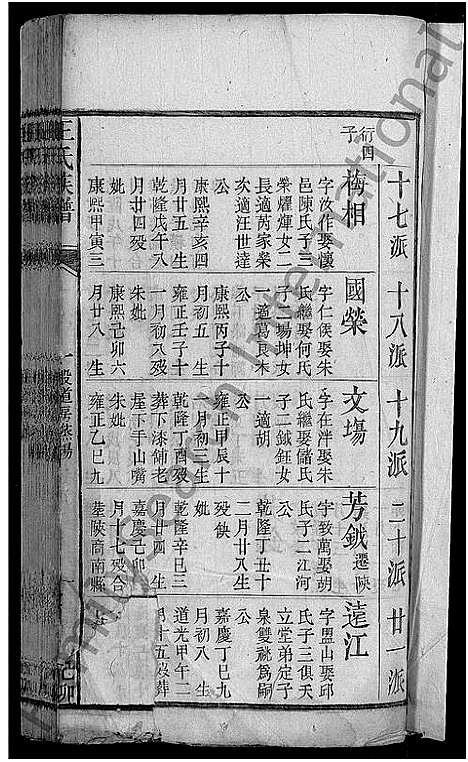 十七派 十八派 十九派 二十派 廿一派
行四
子
梅相
字汝作娶懷
邑陳氏子三
榮燿煇女二
長適芮家榮
次適汪世達
公
康熙辛亥四
月廿五 生
乾隆戊午八
月廿四歿
妣
康熙甲寅三
國榮
字仁侯娶朱
氏繼娶何氏
子二塲坤女
一適葛良木
公
康熙丙子十
月初五 生
雍正壬子十
一月初八歿
朱妣
康熙己卯六
月廿八 生
文塲
字在泮娶朱
氏繼娶儲氏
子二鉞鈺女
一適胡
公
雍正甲辰十
月初三生
乾隆丁酉歿
葬下漆舖老
屋下手山嘴
朱妣
雍正乙巳九
芳鉞 遷陝
字致萬娶胡
氏子二江河
公
乾隆丁丑十
二月廿八生
歿缺
妣
乾隆辛巳三
月廿四 生
嘉慶己卯
月十七歿合
葬陝商南縣
逺江
字盟山娶邱
氏子三俱夭
立堂弟定子
泉雙祧爲嗣
公
嘉慶丁巳九
月初八 生
道光甲午二
月十五歿葬
王氏族譜
己卯